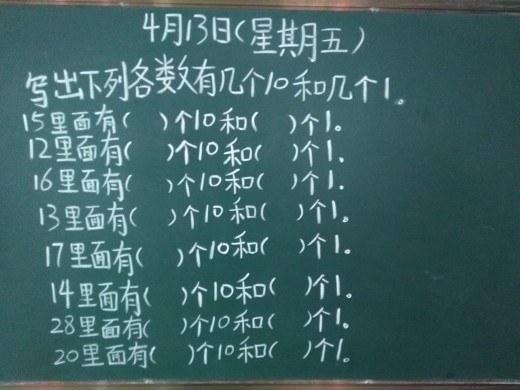 4月13日(星期五)
写出下列各数有几个10和几个1。
15里面有(  )个10和(  )个1。
12里面有(  )个10和(  )个1。
16里面有(  )个10和(  )个1.
13里面有(  )个10和(  )个1。
17里面有(  )个10和(  )个1。
14里面有(  )个10和(  )个1。
28里面有(  )个10和(  )个1。
20里面有(  )个10和(  )个1。